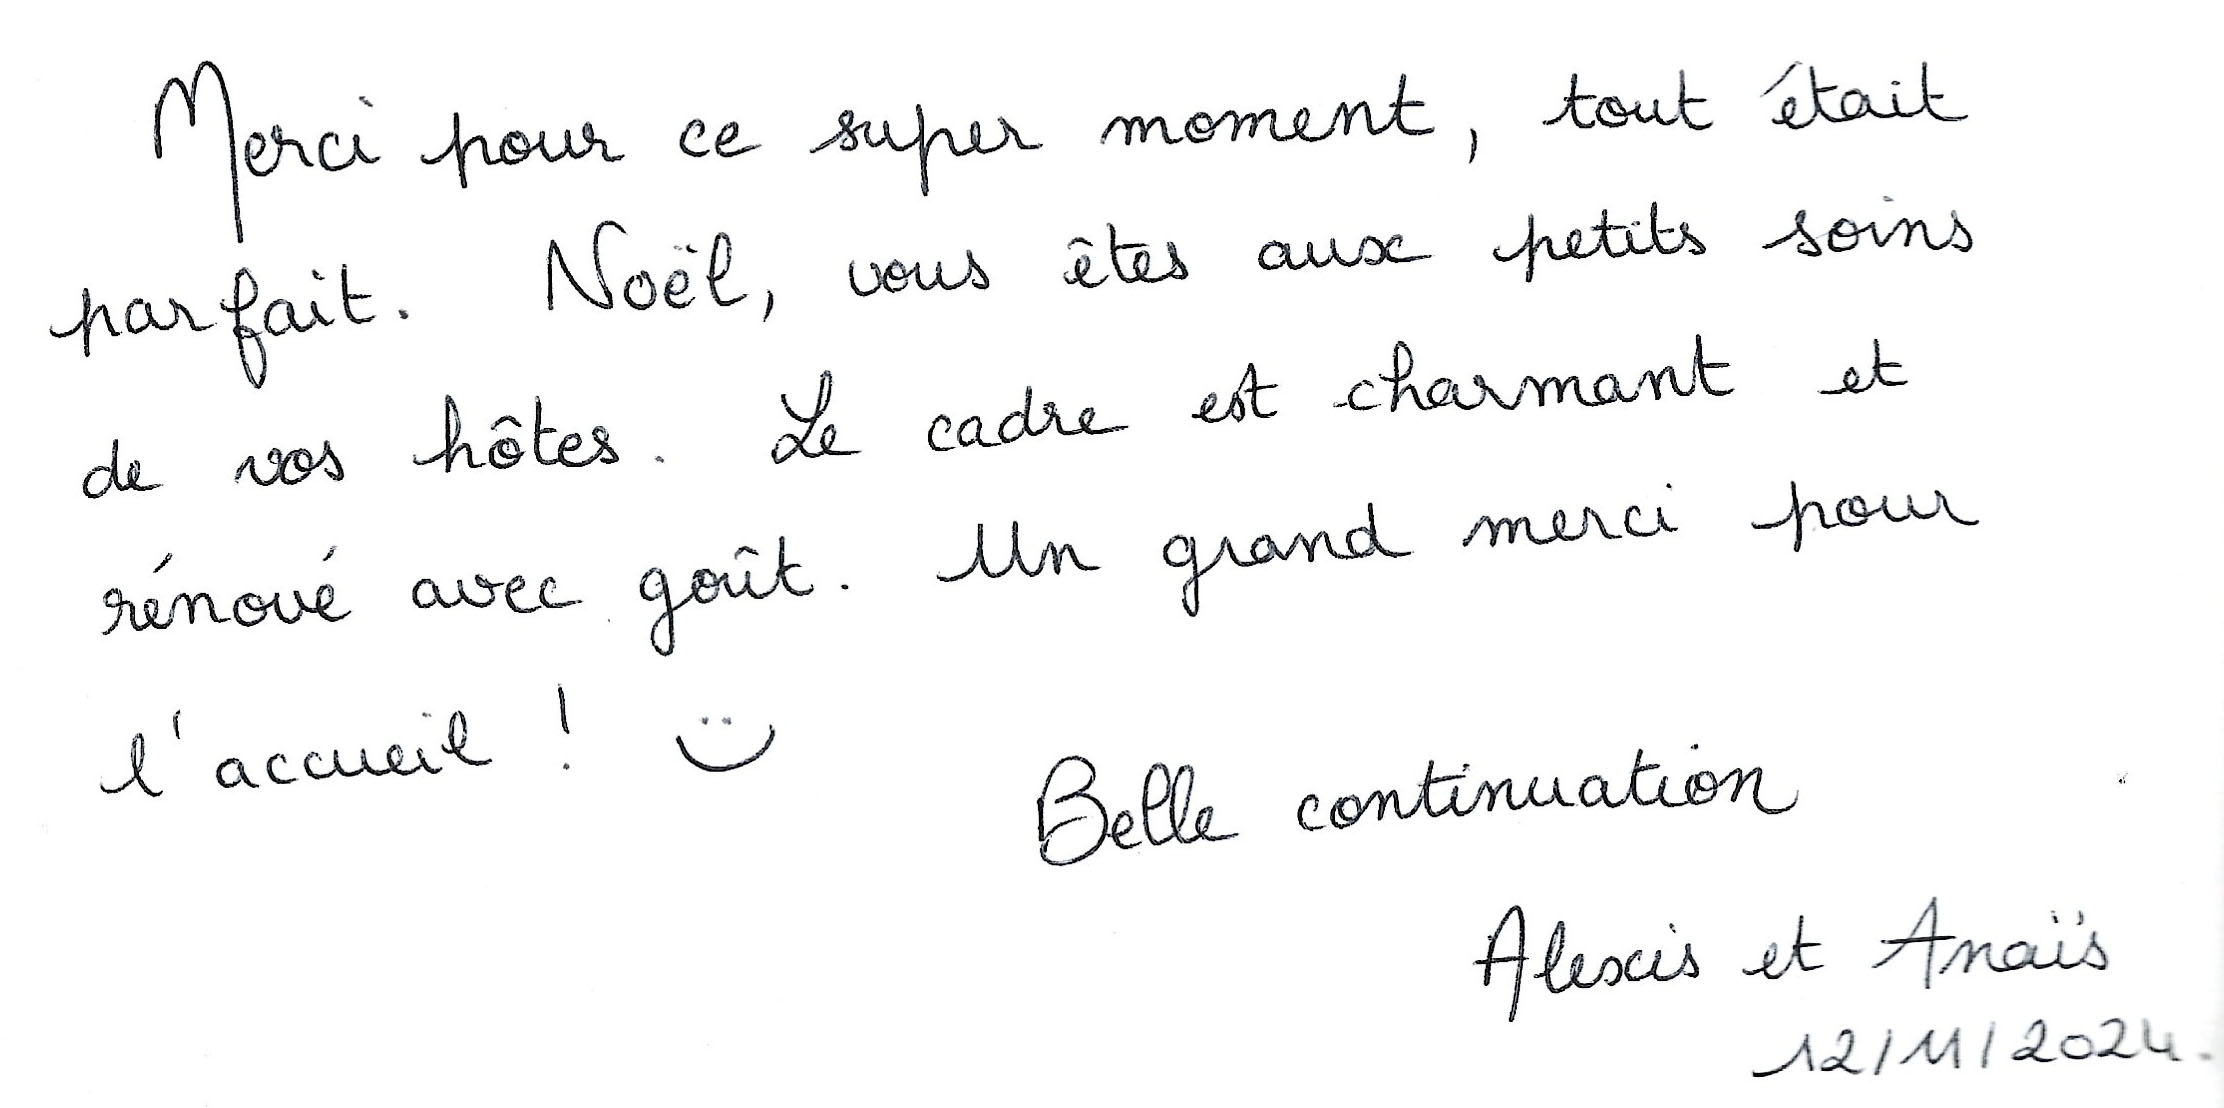 Merci pour ce super moment, tout était
parfait. Noël, vous êtes aux petits soins
de vos hôtes. Le cadre est charmant et
rénové avec goût. Un grand merci pour
l'accueil ! :)
Belle continuation
Alexis et Anaïs
12/11/2024.